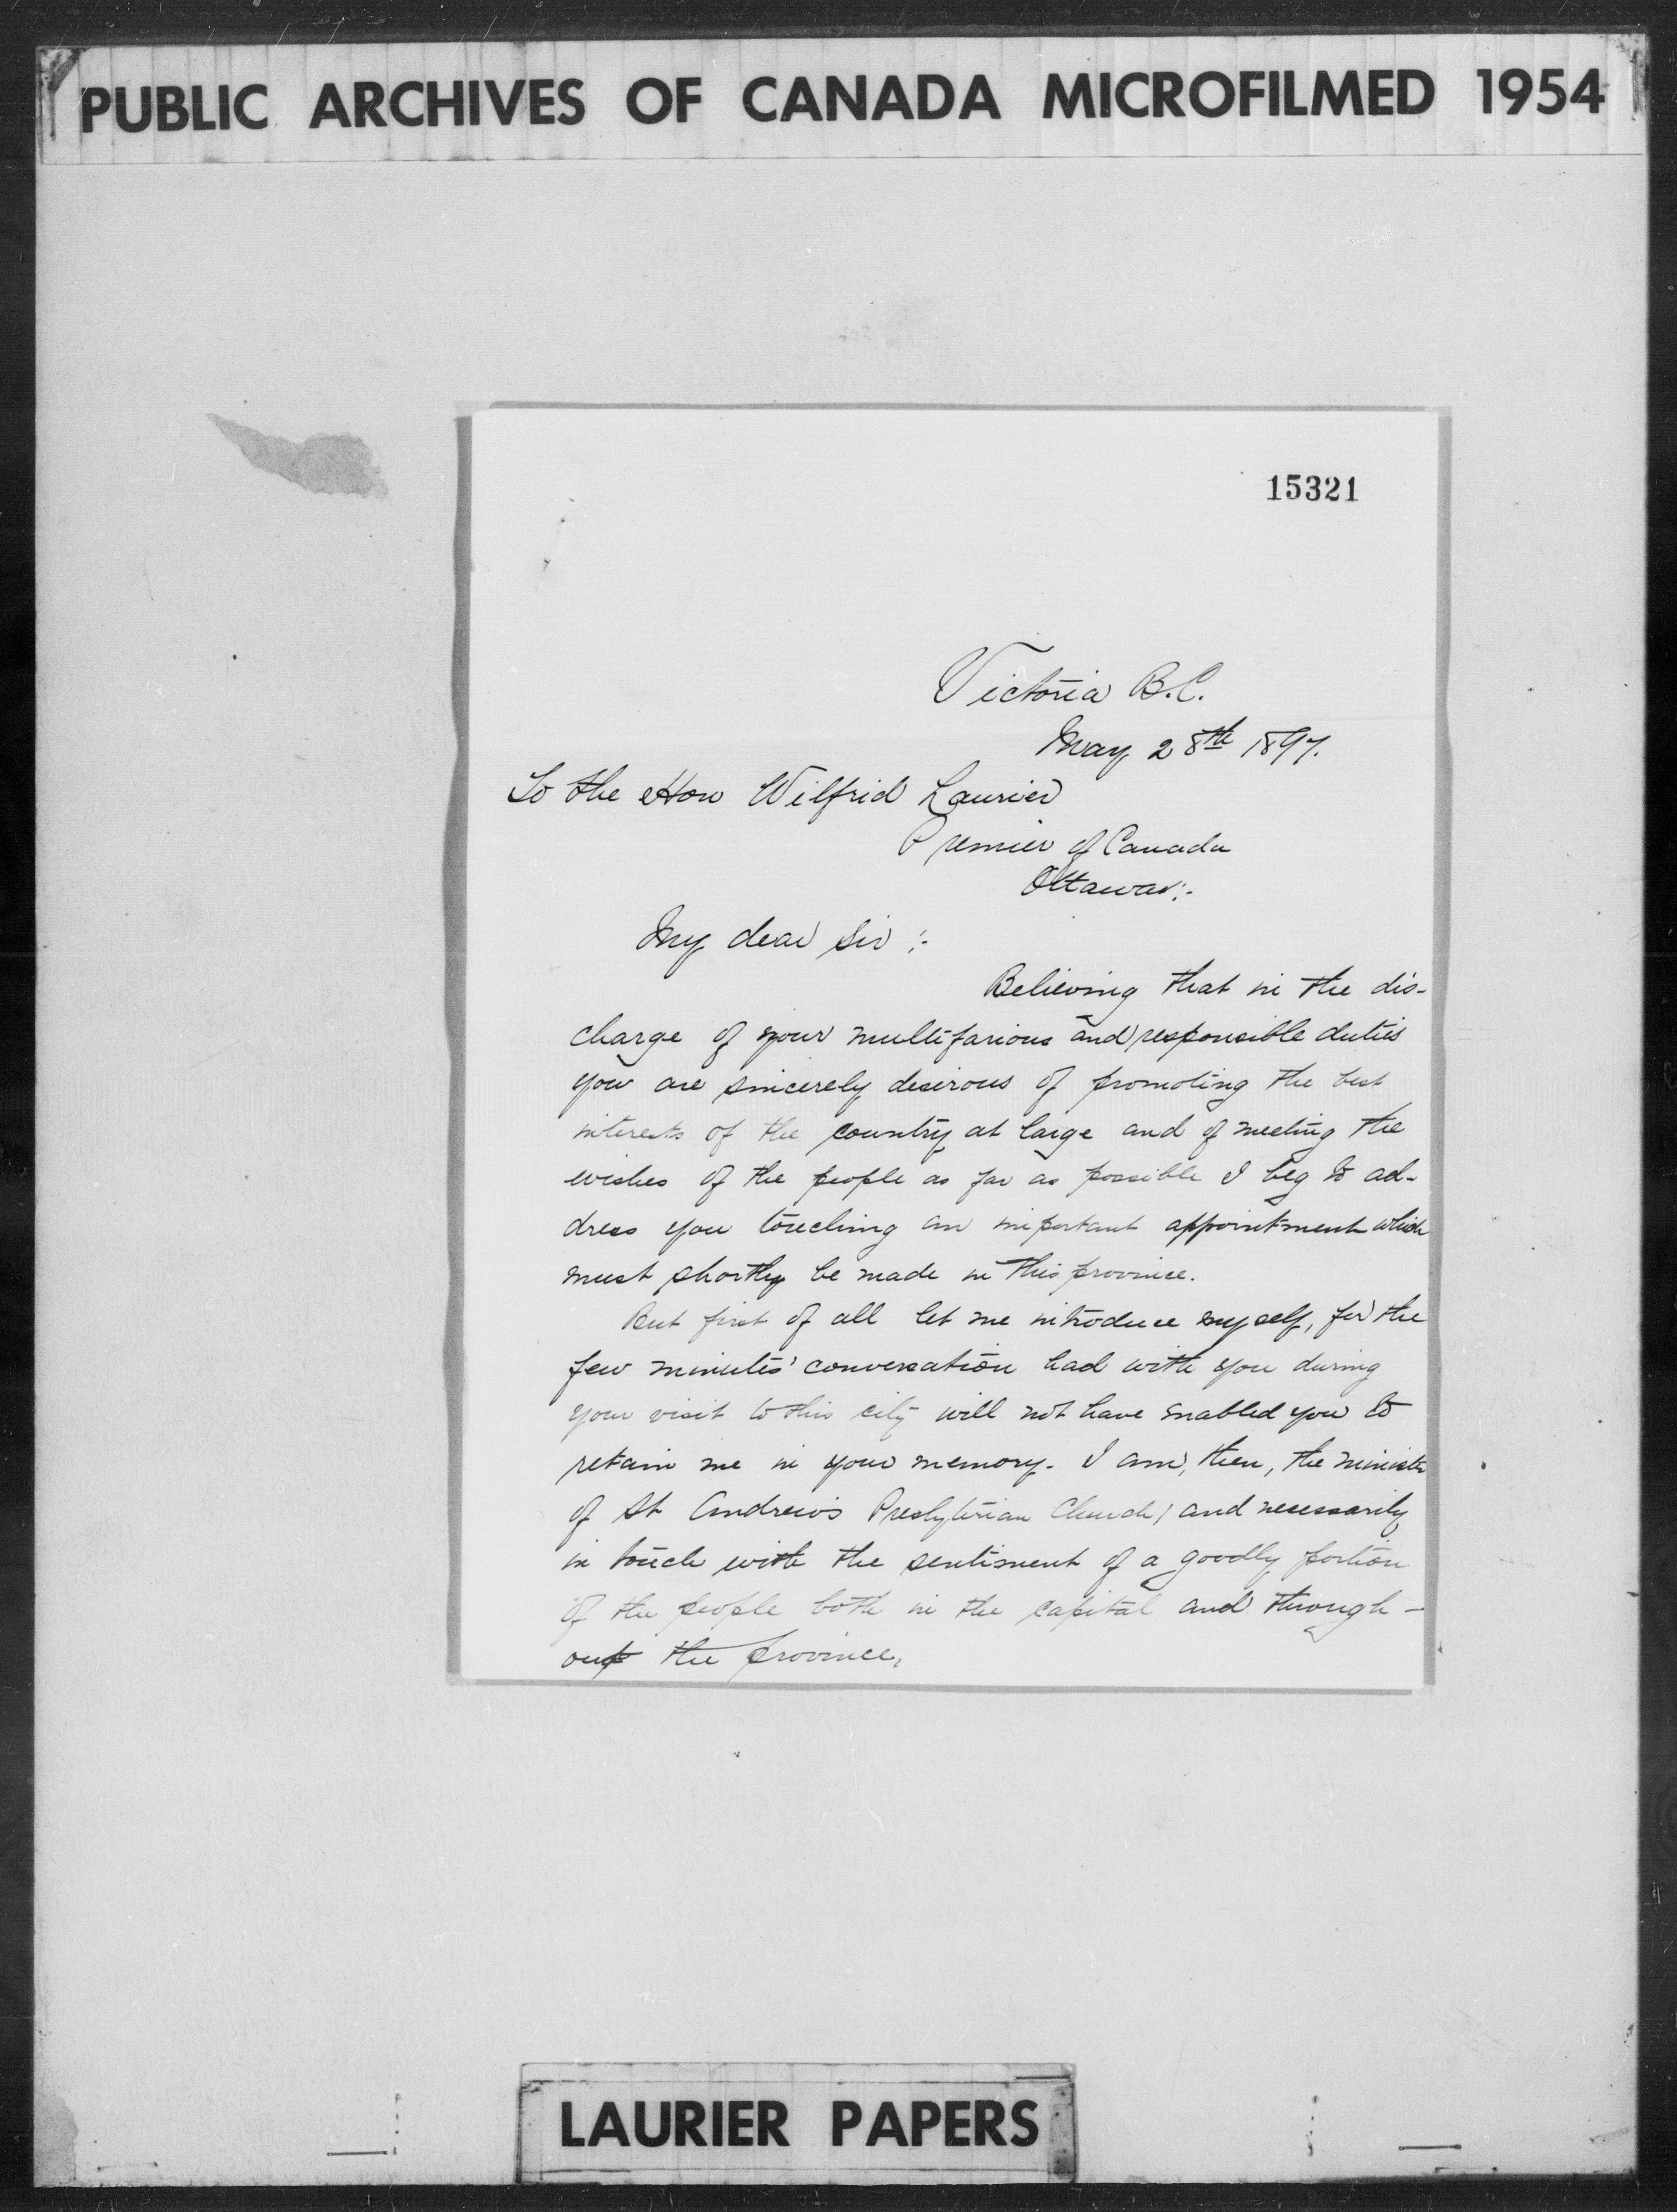 PUBLIC ARCHIVES OF CANADA MICROFILMED 1954
15321
Victoria B.C.
May 28th 1897.
To the Hon Wilfrid Laurier
Premier of Canada
Ottawa:-
My dear Sir :-
Believing that in the dis-
charge of your multifarious and responsible duties
you are sincerely desirous of promoting the best
interests of the country at large and of meeting the
wishes of the people as far as possible I beg to ad-
dress you touching an important appointment which
must shortly be made in this province.
But first of all let me introduce myself, for the
few minutes' conversation had with you during
your visit to this city will not have enabled you to
retain me in your memory. I am, then, the minister
of St Andrew's Presbyterian Church, and necessarily
in touch with the sentiment of a goodly portion
of the people both in the capital and through-
out the province.
LAURIER PAPERS